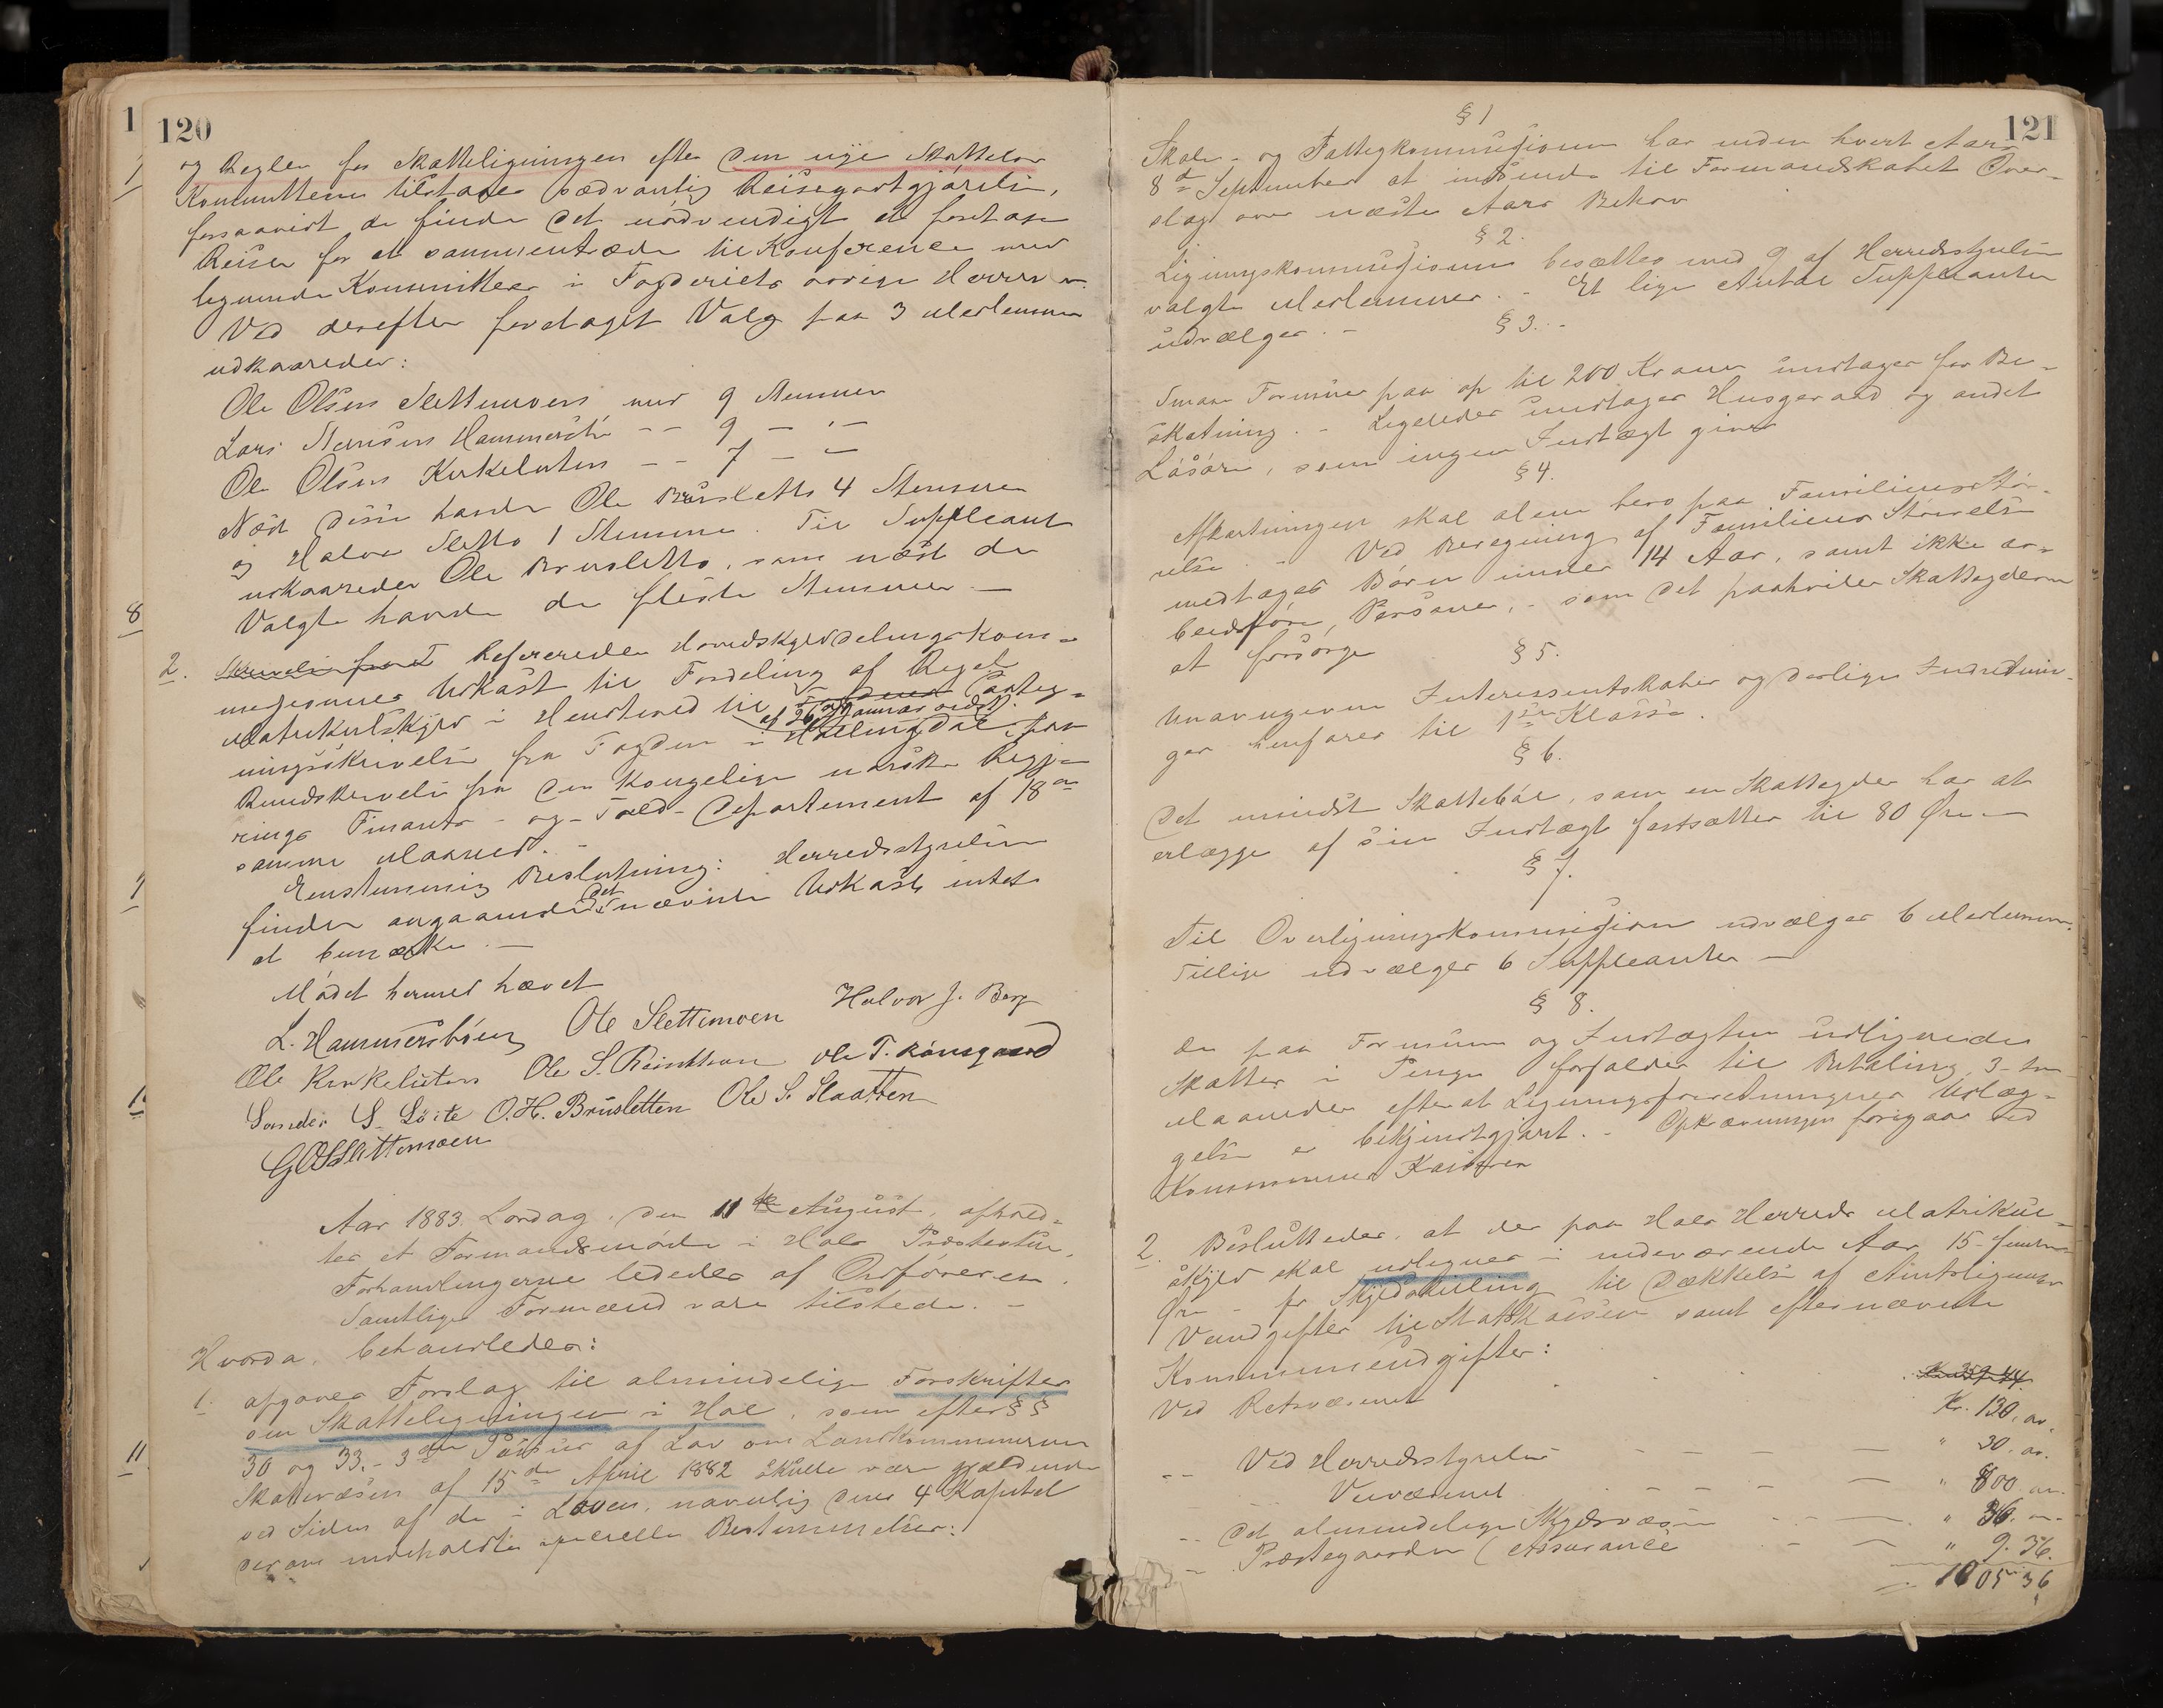 120
og Regler for Skatteligningen efter den nye Skattelov
Kommitteen tilstaaes sædvanlig Reisegodtgjørelse,
forsaavidt de finder det nødvendigt at foretage
Reiser for at sammentræde til Konference med
lignende Kommitteer i Fogderiets øvrige Herreder.
Ved derefter foretaget Valg paa 3 Medlemmer
udkaaredes:
Ole Olsen Slettemoen med 9 Stemmer
Lars Hammersbøen -- 9 - " -
Ole Olsen Kirkeluten -- 7 - " -
Næst disse havde Ole Brusletto 4 Stemmer
og Halvor Sletto 1 Stemme. Til Suppleant
udkaaredes Ole Brusletto, som næst de
Valgte havde de fleste Stemmer. —
2. Refereredes Herredskylddelingskom-
missionens Udkast til Fordeling af Regel
Matrikulskyld i Henhold til Paateg-
af 26de Januar sidstl.
ningsskrivelse fra Fogden i Hallingdal, paa
Rundskrivelse fra den Kongelige norske Regje-
rings Finants- og Told-Departement af 18de
samme Maaned. -
Enstemmig Beslutning: Herredsstyrelsen
finder angaaende det nævnte Udkast intet
at bemærke. —
Mødet hermed hævet
L. Hammersbøen Ole Slettemoen Halvor J. Berg
Ole Kirkeluten Ole S. Reinton Ole T. Rønsgaard
Sander S. Løite O.H. Brusletten Ole S. Slaatten
G O Slettemoen
Aar 1883 Lørdag den 11te August, afhold-
tes et Formandsmøde i Hols Præstestue.
Forhandlingerne lededes af Ordføreren.
Samtlige Formænd vare tilstede. -
Hvorda behandledes:
1. afgaves Forslag til almindelige Forskrifter
om Skatteligningen i Hol, som efter §§
30 og 33, - 3die Passus af Lov om Landkommunernes
Skattevæsen af 15de April 1882 skulle være gjældende
ved Siden af de i Loven, navnlig dens 4 Kapitel
derom indeholdte specielle Bestemmelser:
121
§ 1
Skole- og Fattigkommissionen har inden hvert Aars
8de September at indsende til Formandskabet Over-
slag over næste Aars Behov
§ 2.
Ligningskommissionen besættes med 9 af Herredsstyrelsen
valgte Medlemmer. - Et lige Antal Suppleanter
udvælges. -
§ 3. -
Smaa Formuer paa op til 200 Kroner undtages for Be-
skatning. - Ligeledes undtages Husgeraad og andet
Løsøre, som ingen Indtægt giver
§ 4.
Afkortningen skal alene bero paa Familiens Stør-
relse. - Ved Beregning af Familiens Størrelse
medtages Børn under 14 Aar, samt ikke ar-
beidsføre Personer, - som det paahviler Skatteyderen
at forsørge
§ 5.
Unavngivne Interessentskaber og deslige Indretnin-
ger henføres til 1ste Klasse.
§ 6.
Det mindste Skattebeløb, som en Skatteyder har at
erlægge af sin Indtægt fastsættes til 80 Øre —
§ 7.
Til Overligningskommission udvælges 6 Medlemmer.
Tillige udvælges 6 Suppleanter —
§ 8.
De paa Formuen og Indtægten udlignede
Skatter i Penge forfalder til Betaling 3-tre
Maaneder efterat Ligningsforretningens Udlæg-
gelse er bekjendtgjort. - Opkrævningen foregaar ved
Kommunens Kasserer
2. Besluttedes, at der paa Hols Herreds Matrikul-
skyld skal udlignes i indeværende Aar 15-femten
Øre - pr Skyldskilling til Dækkelse af Amtsligninger
Vandgifter til Statskassen samt efternævnte
Kommuneudgifter:
Ved Retsvæsenet Kr. 130. "
-- Ved Herredsstyrelse - - - " 30. "
Veivæsenet - - - " 800. "
-- Det almindelige Skydsvæsen - - " 36. "
-- Præstegaarden (Assurance - - " 9. 36.
1005 36